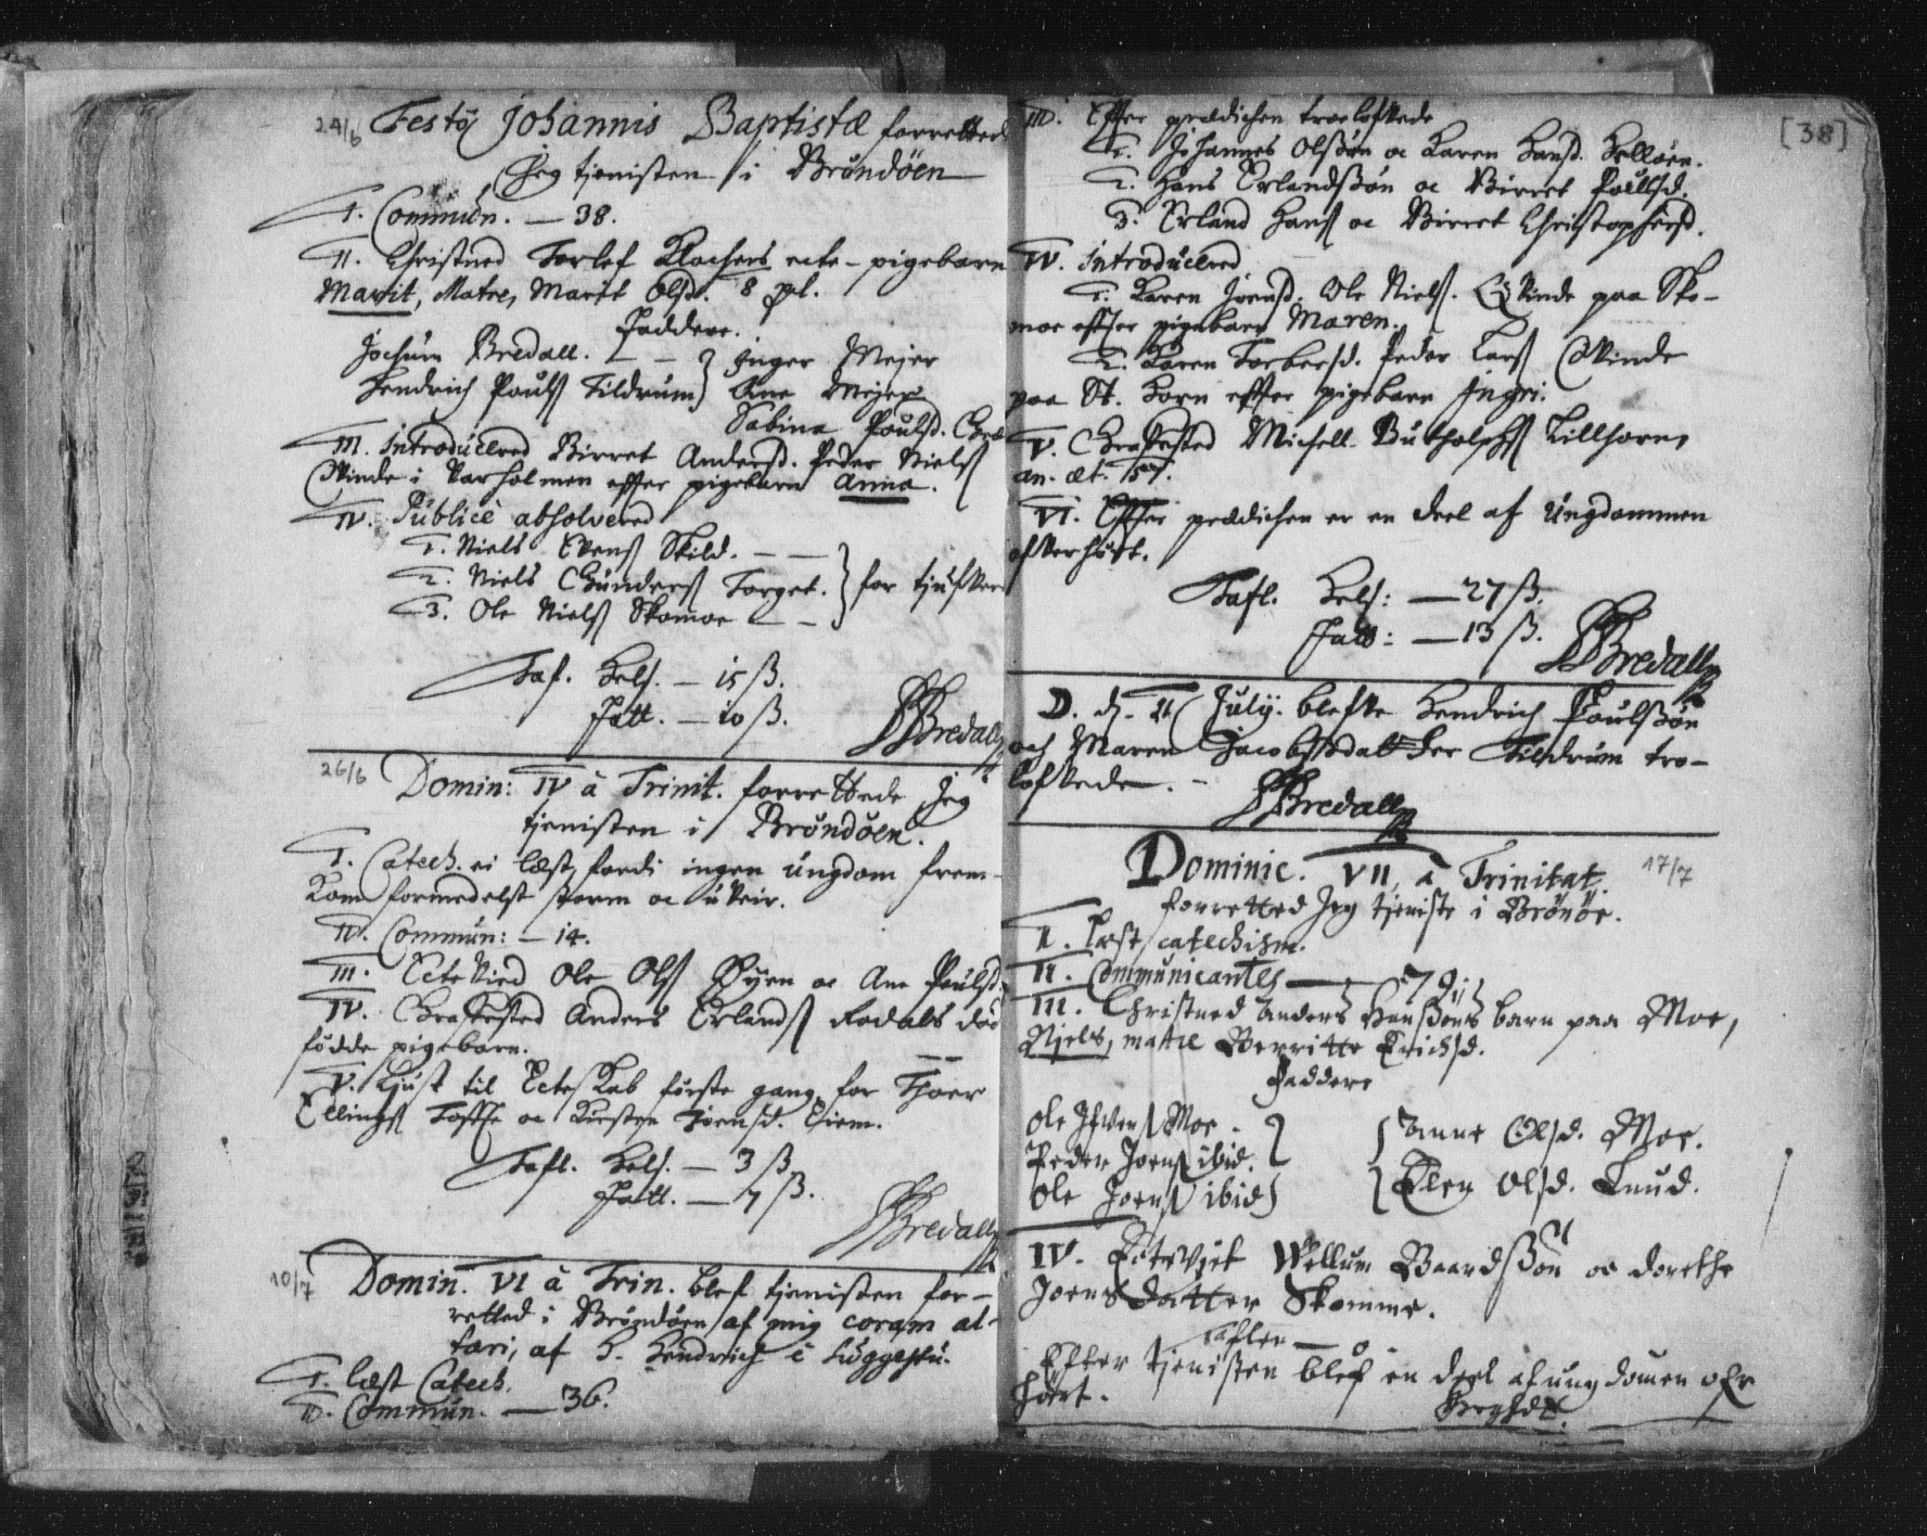 24/6 Festo Johannis Baptistæ forretted
Jeg tjenisten i Brøndøen
I. Commun. — 38.
II. Christned Torlef Klochers ecte-pigebarn
Marit, Matre, Marit Olsd.
Faddere.
Jochum Bredall. — — Inger Mejer
Hendrich Pouls Tildrum Ane Mejer
Sabina Poulsd.
III. Introducered Birret Andersd. Peder Niels
Qvinde i Varholmen efter pigebarn Anna.
IV. Publicè absolvered
1. Niels Evens Skild. — —
2. Niels Gunders Torget. for tjufveri
3. Ole Niels Skomoe — —
Taf. Hels. — 15 ß.
Fatt. — 10 ß.
Bredall
26/6 Domin: IV à Trinit. forrettede Jeg
tjenisten i Brøndøen.
I. Catech. ei læst, fordi ingen ungdom frem-
kom formedelst storm oc uveir.
II. Commun: — 14.
III. Ectevied Ole Ols Øyen oc Ane Poulsd.
IV. Grafested Anders Erlands Rodals død
fødde pigebarn.
V. Liust til Ecteskab første gang for Thoer
Ellings Tofte oc Kirsten Joensd. Tiem.
Tafl. Hels. — 3 ß
Fatt. — 7 ß.
Bredall
10/7 Domin. VI à Trin. blef tjenisten for-
retted i Brøndøen af mig coram al-
tari, af H. Hendrich è suggestu.
I. læst Catech.
II. Commun. — 36.
[38]
III. Efter prædichen troelofvede
1. Johannes Olsøn oc Karen Hansd. Helløen.
2. Hans Erlandsøn oc Birret Poulsd.
3. Erland Hans oc Birret Christophersd.
IV. Introducered
1. Karen Joensd. Ole Niels. Qvinde paa Sko-
moe efter pigebarn Maren.
2. Karen Torbersd. Peder Lars Qvinde
paa St. Torn efter pigebarn Ingri.
V. Grafested Michell Butholphs Lillhorn,
an. æt. 57.
VI. Efter prædichen er en deel af Ungdommen
ofverhørt.
Tafl. Hels: — 27 ß.
Fatt: — 13 ß.
Bredall
D. d. 26 July. blefve Hendrich Poulsøn
och Maren Jacobsdatter Tildrum tro-
lofvede. —
Bredall
Dominic. VII, à Trinitat. 17/7
forretted Jeg tjeniste i Brønøe.
I. Læst catechism.
II. Communicantes — 79
III. Christned Anders Hansøns barn paa Moe,
Njels, matre Berritte Erichsd.
Faddere
Ole Ifvers Moe. Anne Olsd. Moe.
Peder Joens ibid.
Ole Joens ibid Elen Olsd. Lund.
IV. Ectevjet Willum Baardsøn oc Dorethe
Joens datter Skomme.
Taflen — 0
Efter tjenisten blef en deel af ungdomen ofr
hørt.